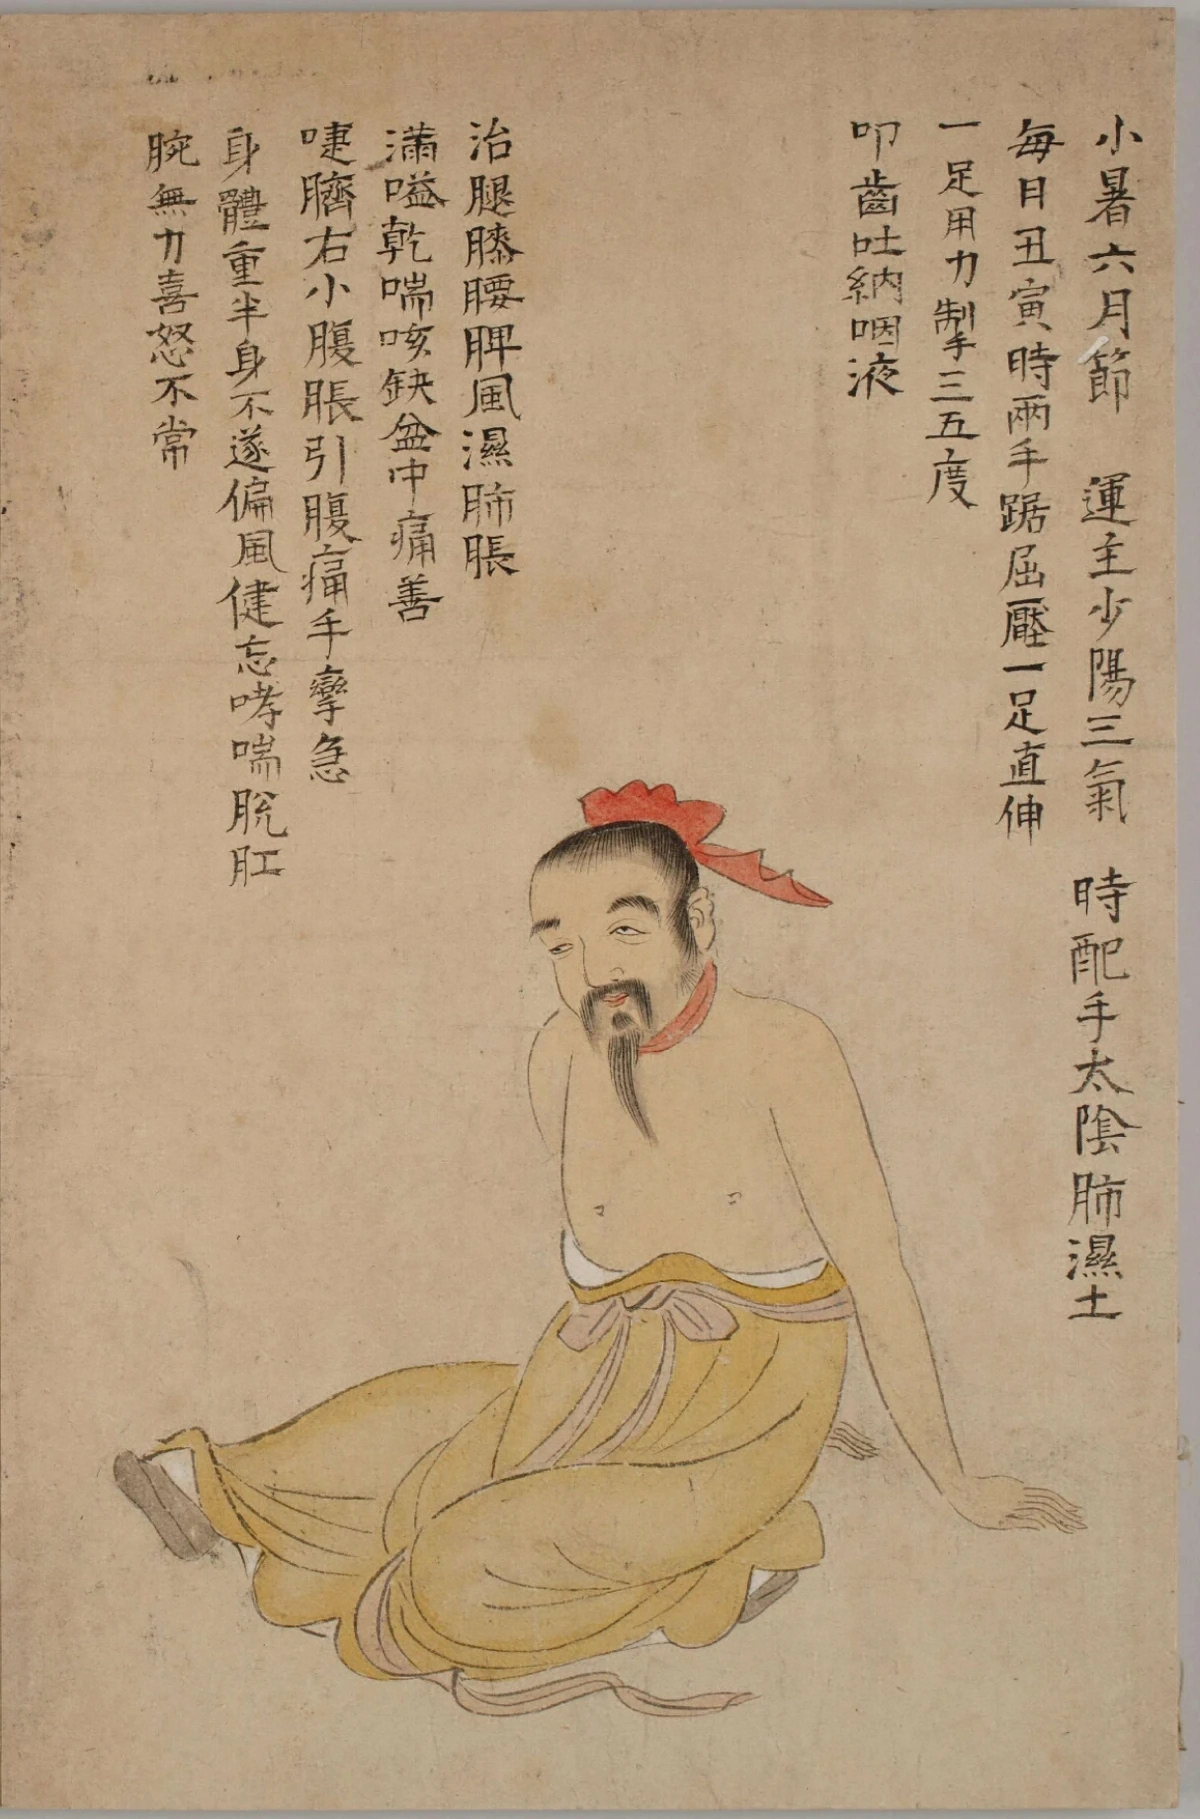 小暑六月節　運主少陽三氣　時配手太陰肺濕土
每日丑寅時兩手踞屈壓一足直伸
一足用力掣三五度
叩齒吐納咽液
治腿膝腰脾風濕肺脹
滿嗌乾喘咳缺盆中痛善
啑臍右小腹脹引腹痛手攣急
身體重半身不遂偏風健忘哮喘脫肛
腕無力喜怒不常